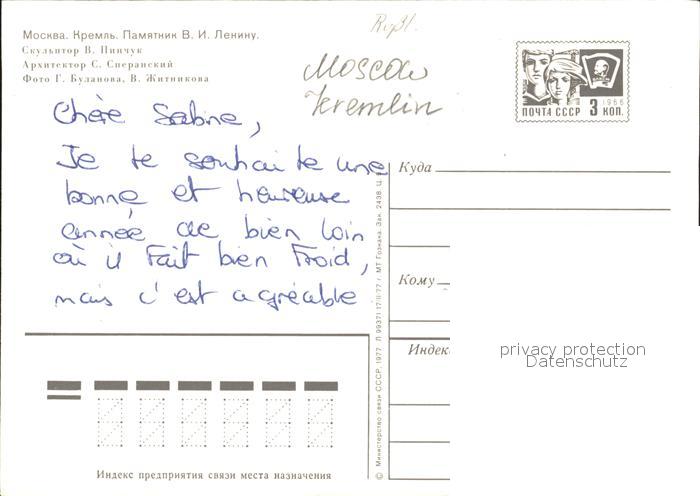 Rußl.
Москва. Кремль. Памятник В. И. Ленину.
Скульптор В. Пинчук
Архитектор С. Сперанский
Фото Г. Буланова, В. Житникова
Moscow
Kremlin
ПОЧТА СССР 3 КОП.
1966
Chère Sabine,
Je te souhaite une
bonne et heureuse
année de bien loin
où il fait bien froid,
mais c'est agréable
Куда
Кому
Индекс
privacy protection
Datenschutz
Индекс предприятия связи места назначения
© Министерство связи СССР, 1977. Л 99371 17/II-77 г. МТ Гознака. Зак. 2438. Ц.